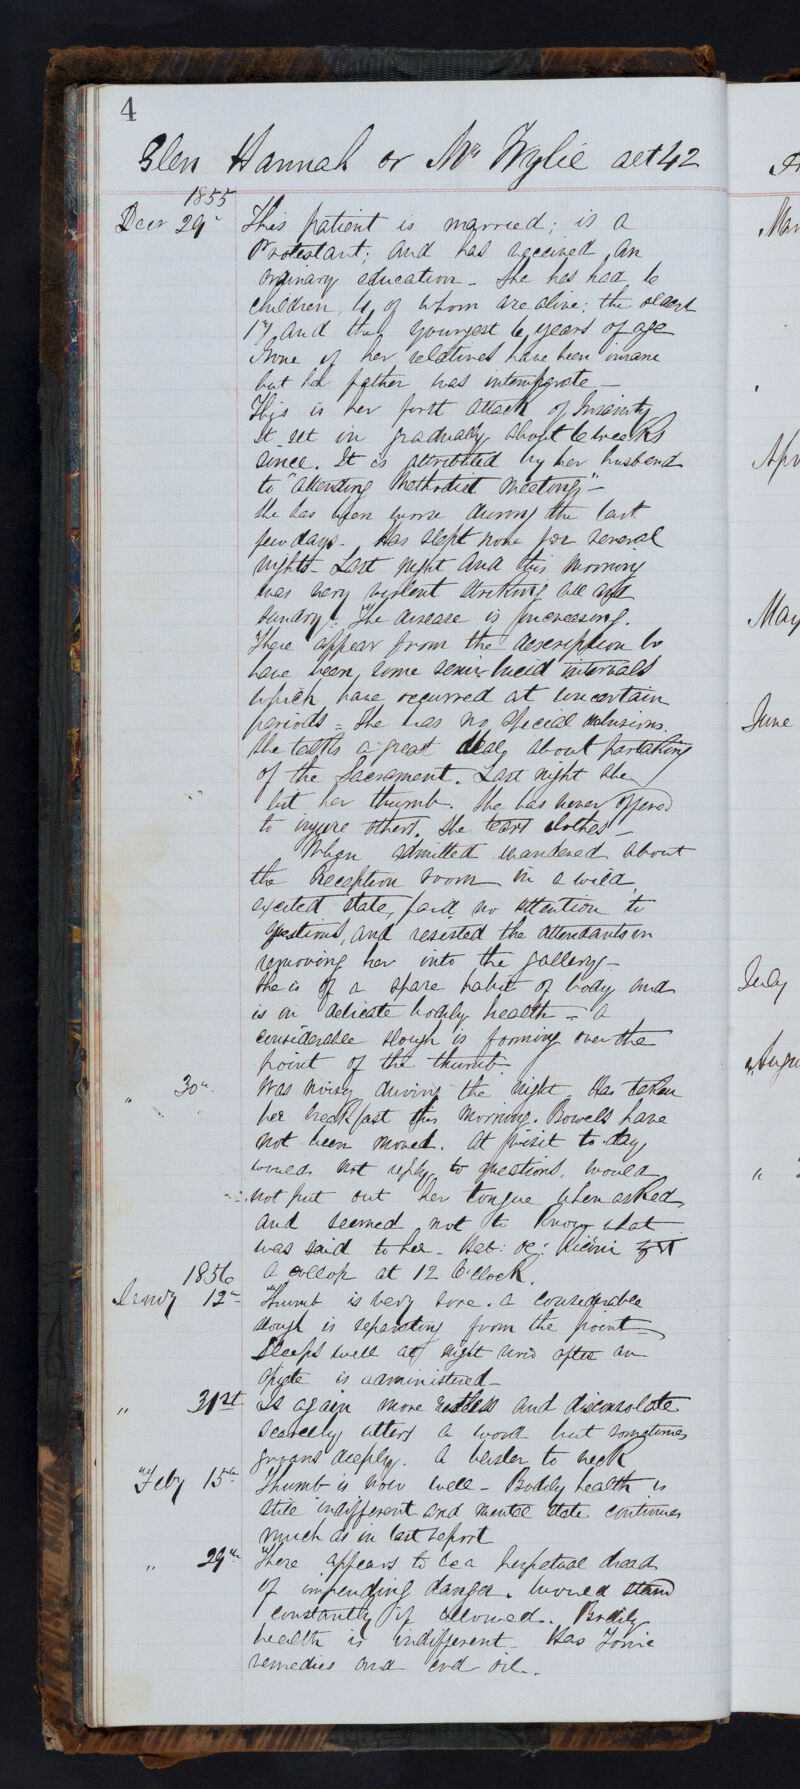 4
Glen Hannah or Mc Wylie aet 42
1855
Decr 29th This patient is married; is a
Protestant; and has received an
ordinary education - She has had 6
children, 4 of whom are alive; the oldest
17 and the youngest 6 years of age
None of her relatives have been insane
but her father was intemperate -
This is her first attack of Insanity
It set in gradually about 6 weeks
since. It is attributed by her husband
to "attending Methodist Meetings" -
She has been worse during the last
few days. Has slept none for several
nights - Last night and this morning
was very violent striking all and
sundry. The disease is increasing.
There appear from the description to
have been some semi-lucid intervals
which have occurred at uncertain
periods - She has no special delusions.
She talks a great deal about partaking
of the Sacrament. Last night she
bit her thumb. She has never offered
to injure others. She tears clothes -
When admitted wandered about
the Reception room in a wild,
excited state, paid no attention to
questions, and resisted the attendants in
removing her into the gallery -
She is of a spare habit of body and
is in delicate bodily health - a
considerable slough is forming over the
point of the thumb.
" 30th Was noisy during the night. Has taken
her breakfast this morning. Bowels have
not been moved. At visit to day
would not reply to questions, would
not put out her tongue when asked,
and seemed not to know what
was said to her - Hab: ol: Ricini
1856 a collop at 12 O'Clock.
Janry 12th Thumb is very sore. A considerable
slough is separating from the point -
Sleeps well at night after an
opiate is administered -
" 31st Is again more restless and disconsolate
scarcely utters a word but sometimes
groans deeply. A blister to neck
" Feby 15th Thumb is now well - Bodily health is
still indifferent and mental state continues
much as in last report
" 29th There appears to be a perpetual dread
of impending danger. Would stand
constantly if allowed. Bodily
health is indifferent - Has Tonic
remedies and cod oil.
Mar
Apr
May
June
July
" Augu
"